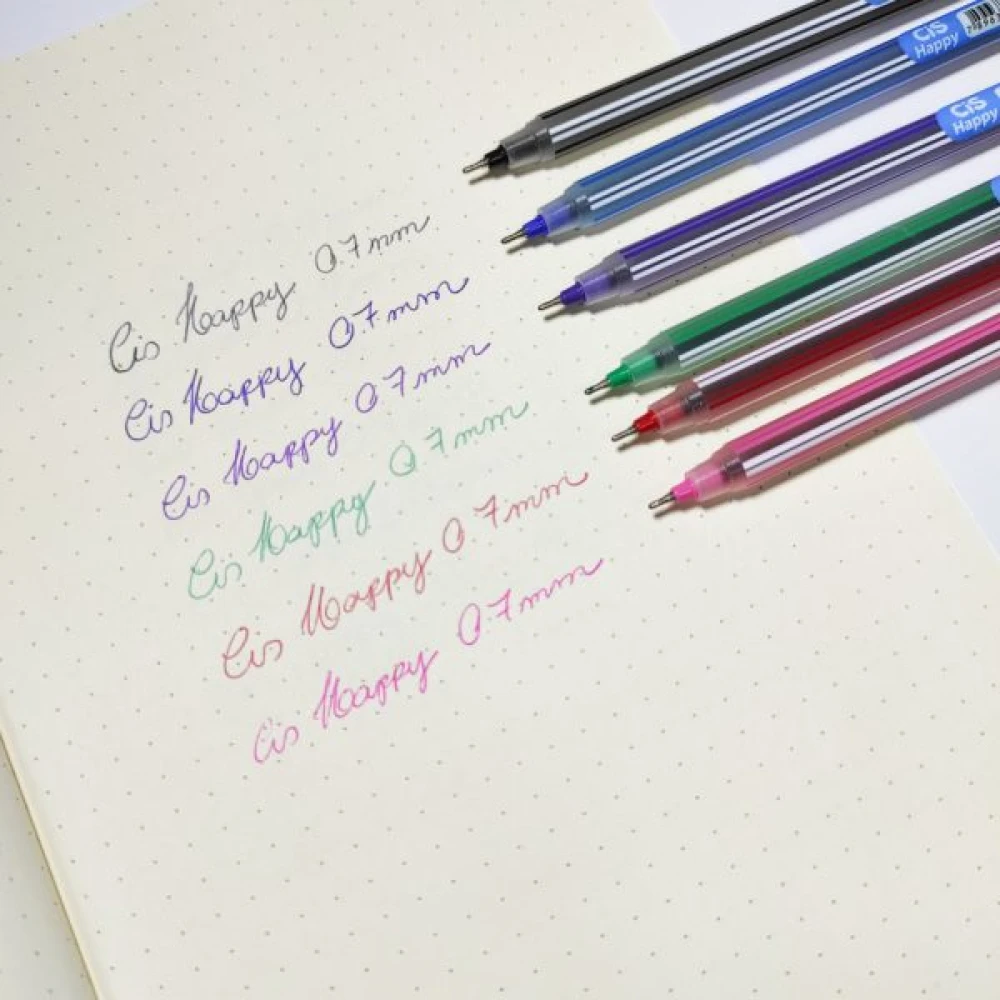 Cis Happy 0.7mm
Cis Happy 0.7mm
Cis Happy 0.7mm
Cis Happy 0.7mm
Cis Happy 0.7mm
Cis Happy 0.7mm
CiS
Happy
CiS
Happy